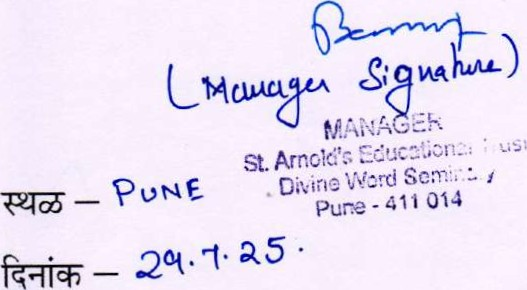 (Manager Signature)
MANAGER
St. Arnold's Educational Trust
Divine Word Seminary
Pune - 411 014
स्थळ – PUNE
दिनांक – 29.7.25.